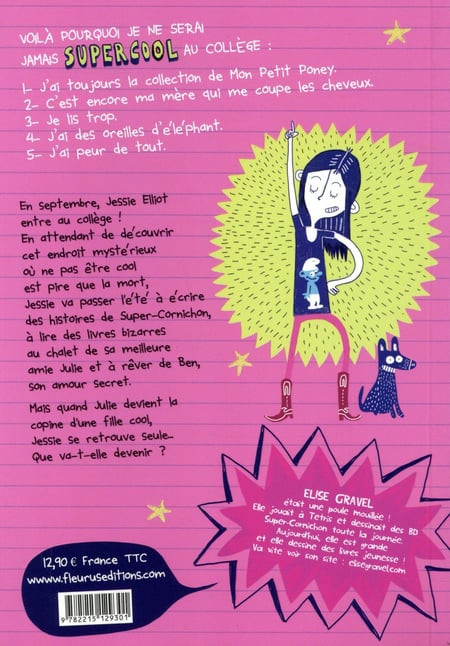 VOILÀ POURQUOI JE NE SERAI
JAMAIS SUPERCOOL AU COLLÈGE :
1- J'ai toujours la collection de Mon Petit Poney.
2- C'est encore ma mère qui me coupe les cheveux
3- Je lis trop.
4- J'ai des oreilles d'éléphant.
5- J'ai peur de tout.
En septembre, Jessie Elliot
entre au collège !
En attendant de découvrir
cet endroit mystérieux
où ne pas être cool
est pire que la mort,
Jessie va passer l'été à écrire
des histoires de Super-Cornichon,
à lire des livres bizarres
au chalet de sa meilleure
amie Julie et à rêver de Ben,
son amour secret.
Mais quand Julie devient la
copine d'une fille cool,
Jessie se retrouve seule...
Que va-t-elle devenir ?
ELISE GRAVEL
était une poule mouillée !
Elle jouait à Tetris et dessinait des BD
Super-Cornichon toute la journée.
Aujourd'hui, elle est grande
et elle dessine des livres jeunesse !
Va vite voir son site : elisegravel.com
12,90 € France TTC
www.fleuruseditions.com
9 782215 129301